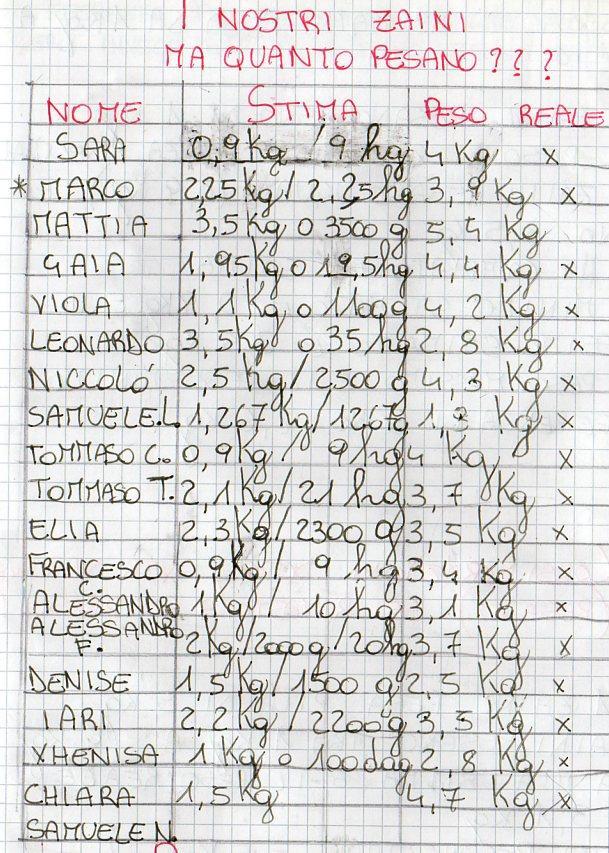 I NOSTRI ZAINI
MA QUANTO PESANO???
NOME STIMA PESO REALE
SARA 0,9 Kg / 9 hg 4 Kg x
* MARCO 2,25 Kg / 2,25 hg 3,9 Kg x
MATTIA 3,5 Kg o 3500 g 5,4 Kg
GAIA 1,95 Kg o 19,5 hg 4,4 Kg x
VIOLA 1,1 Kg o 1100 g 4,2 Kg x
LEONARDO 3,5 Kg o 35 hg 2,8 Kg x
NICCOLÓ 2,5 hg / 2500 g 4,3 Kg x
SAMUELE.L. 1,267 Kg / 1267 g 1,3 Kg x
TOMMASO C. 0,9 Kg / 9 hg 4 Kg x
TOMMASO T. 2,1 Kg / 21 hg 3,7 Kg x
ELIA 2,3 Kg / 2300 g 3,5 Kg x
FRANCESCO C. 0,9 Kg / 9 hg 3,4 Kg x
ALESSANDRO 1 Kg / 10 hg 3,1 Kg x
ALESSANDRO F. 2 Kg / 2000 g / 20 hg 3,7 Kg x
DENISE 1,5 Kg / 1500 g 2,5 Kg x
IARI 2,2 Kg / 2200 g 3,5 Kg x
XHENISA 1 Kg o 100 dag 2,8 Kg x
CHIARA 1,5 Kg 4,7 Kg x
SAMUELE N.